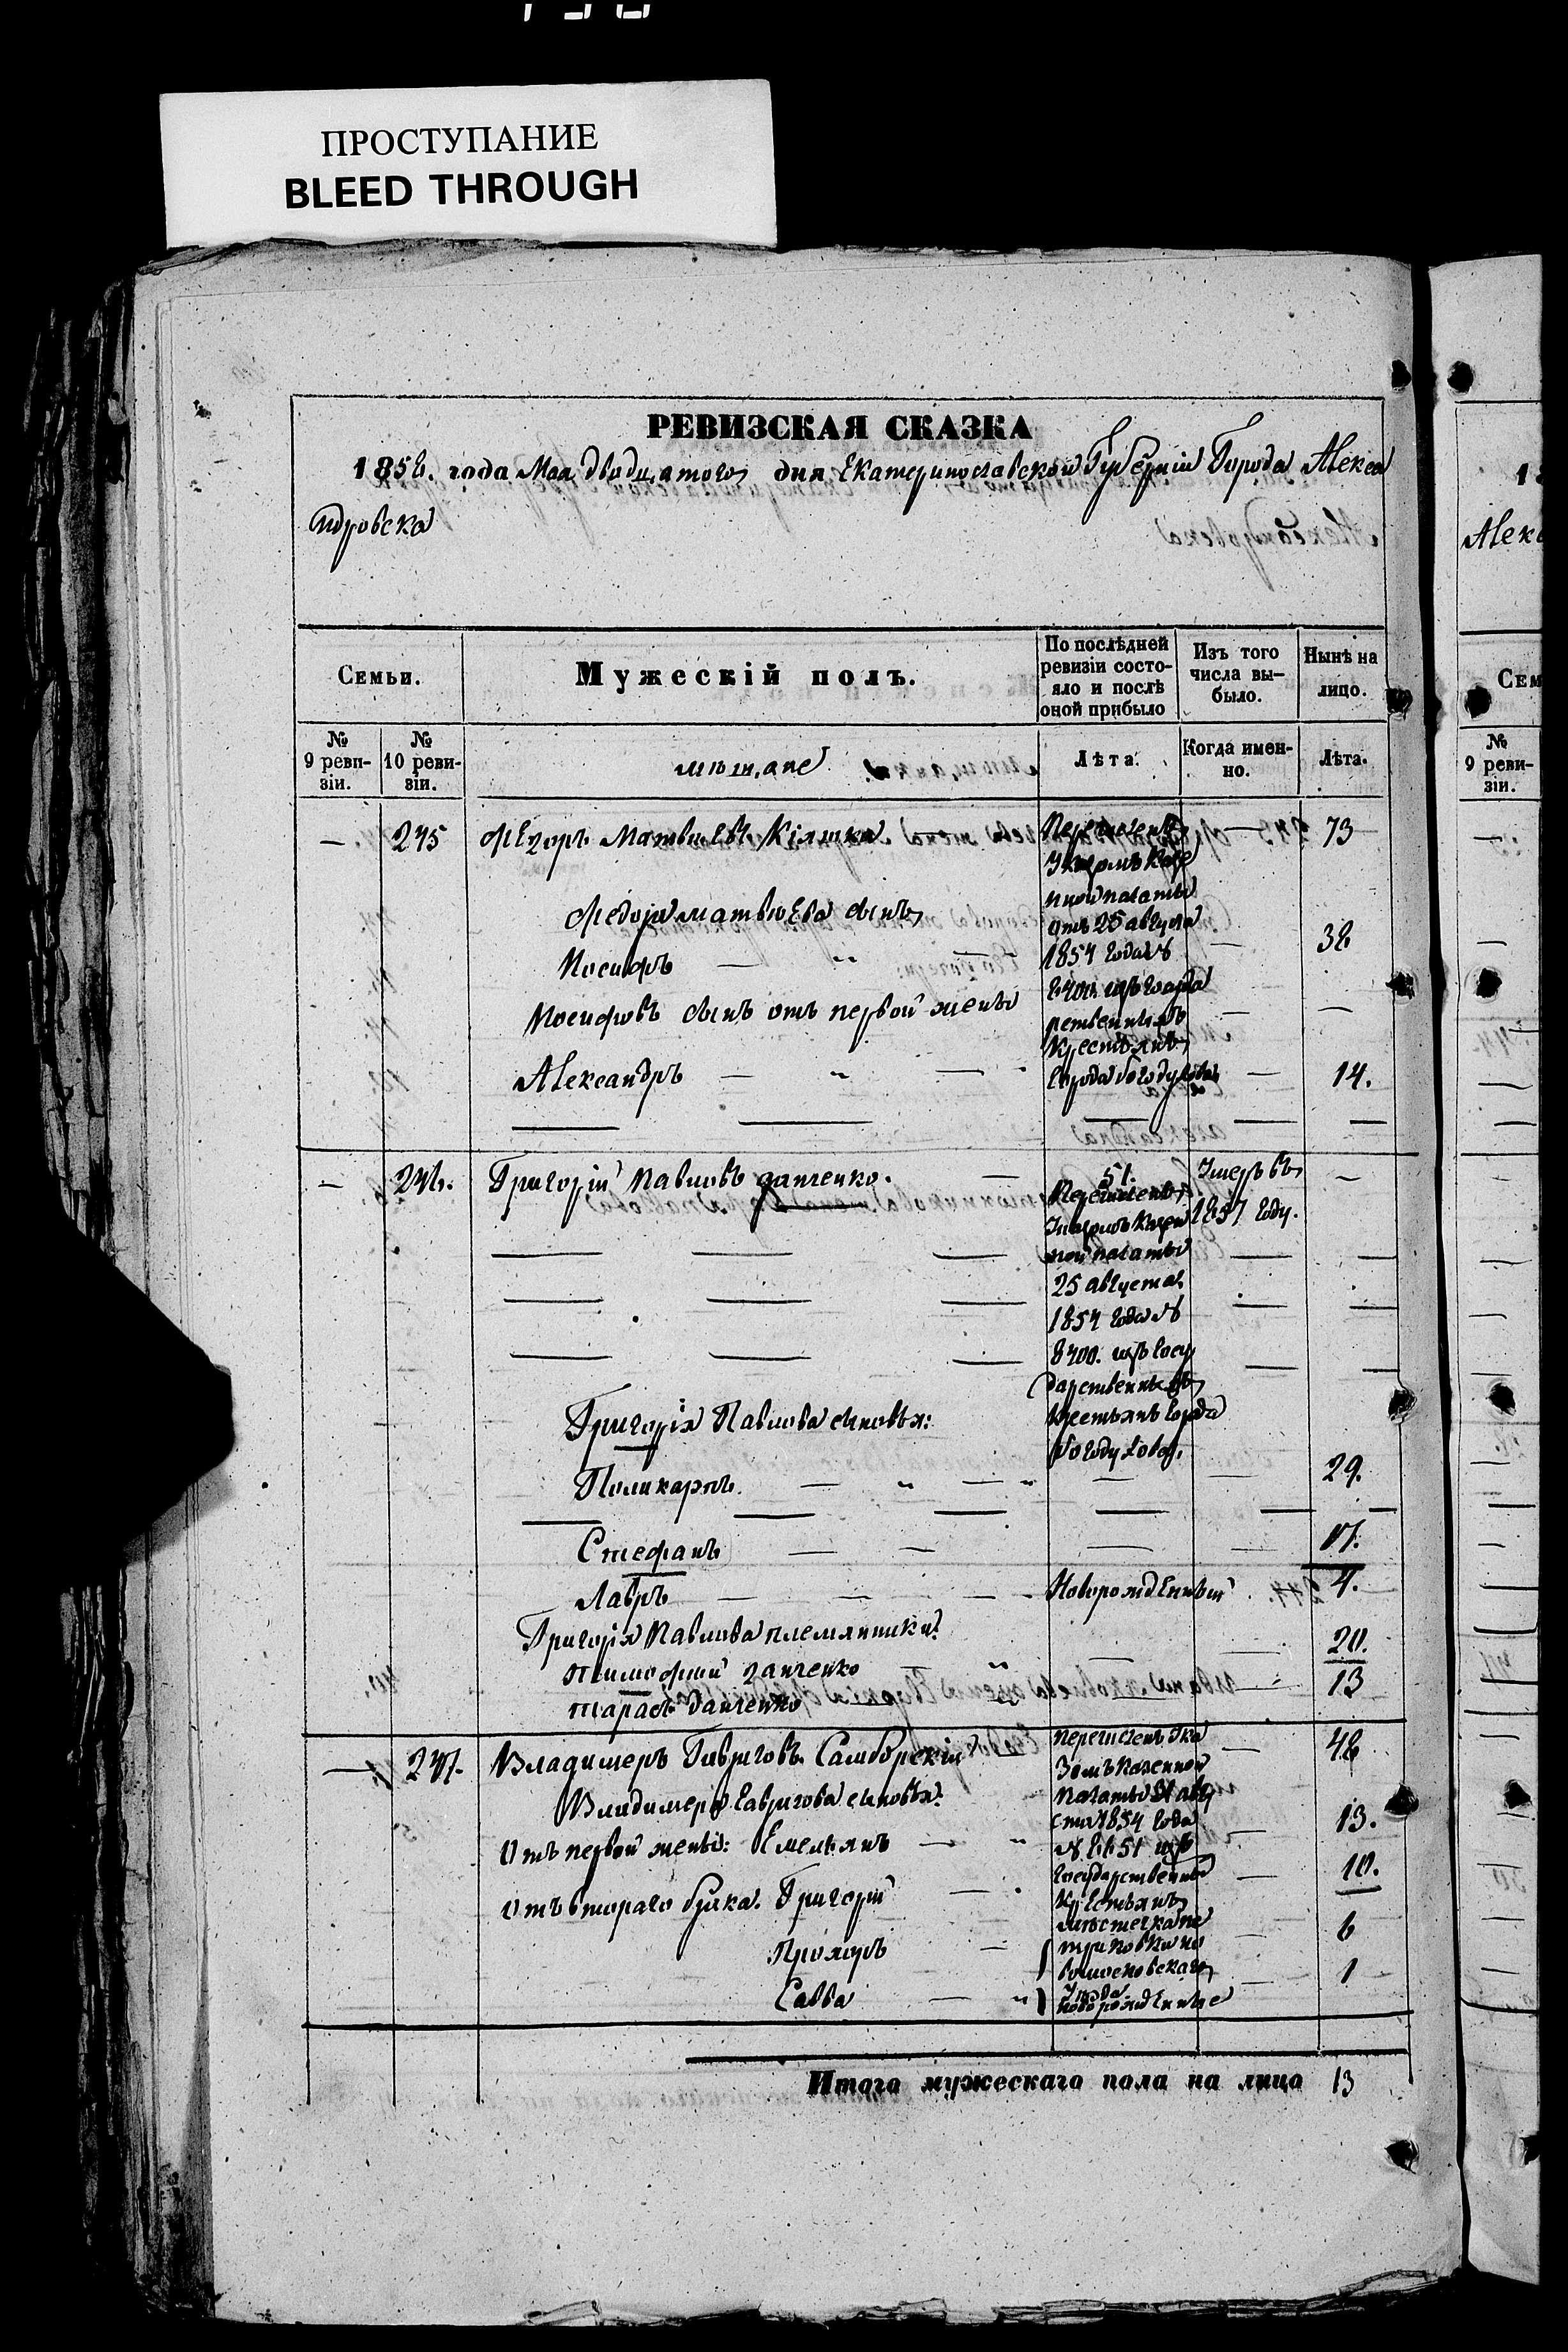 ПРОСТУПАНИЕ
BLEED THROUGH
РЕВИЗСКАЯ СКАЗКА
1858. года Мая двадцатого дня Екатеринославской Губерніи Города Алекса
ндровска
Семьи.
Мужескій полъ.
По послѣдней ревизіи состо-яло и послѣ оной прибыло
Изъ того числа вы-было.
Нынѣ на лицо.
№ 9 реви-зіи.
№ 10 реви-зіи.
мѣщане
Лѣта.
Когда имен-но.
Лѣта.
— 245 Ѳедоръ Матвѣевъ — 73
Перечисленъ
Указомъ Казе
нной палаты
отъ 25 августа
1854 года №
8700. изъ государ
ственныхъ
крестьянъ
города Богодухова
Федора Матвѣева сынъ
Іосифъ — " — — 38
Іосифовъ сынъ отъ первой жены — —
Александръ — " — — 14.
— 246. Григорій Павловъ Данченко. — 51. Умеръ въ —
1857 году.
Перечисленъ
Указомъ Казен
ной палаты
25 августа
1854 года №
8700. изъ Госу
дарственныхъ
крестьянъ города
Богодухова.
Григорія Павлова сыновья:
Поликарпъ. — " — " — — 29.
Стефанъ — — — — 17.
Лавръ — — — Новорожденный 4.
Григорія Павлова племянники:
Тимофѣй Данченко — — 20.
Тарасъ Данченко — — 13
— 247. Владимеръ Гавриловъ Самборскій — — 48
Перечисленъ Ука
зомъ Казенной
Палаты
1854 года
№ изъ
Государственныхъ
Крестьянъ
мѣстечка Пе
триковки но
вомосковскаго
уѣзда
новорожденные
Владимера Гаврилова сыновья:
Отъ первой жены: Емельянъ — " — 13.
Отъ втораго брака. Григорій — — 10.
— — 6
Савва — " — 1
Итого мужескаго пола на лицо 13
Алекс
Сем
№ 9 реви-зіи.